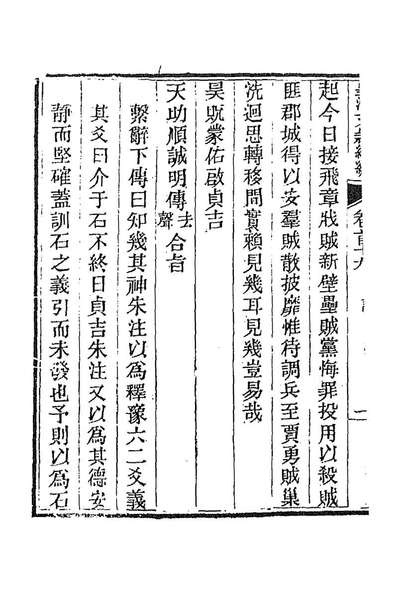 起今日接飛章戕賊新壁壘賊黨悔罪投用以殺賊
匪郡城得以安羣賊散披靡惟待調兵至賈勇賊巢
洗迴思轉移間實賴見幾耳見幾豈易哉
昊貺蒙佑啟貞吉
天助順誠明傳去聲合旨
繫辭下傳曰知幾其神朱注以為釋豫六二爻義
其爻曰介于石不終日貞吉朱注又以為其德安
靜而堅確蓋訓石之義引而未發也予則以為石